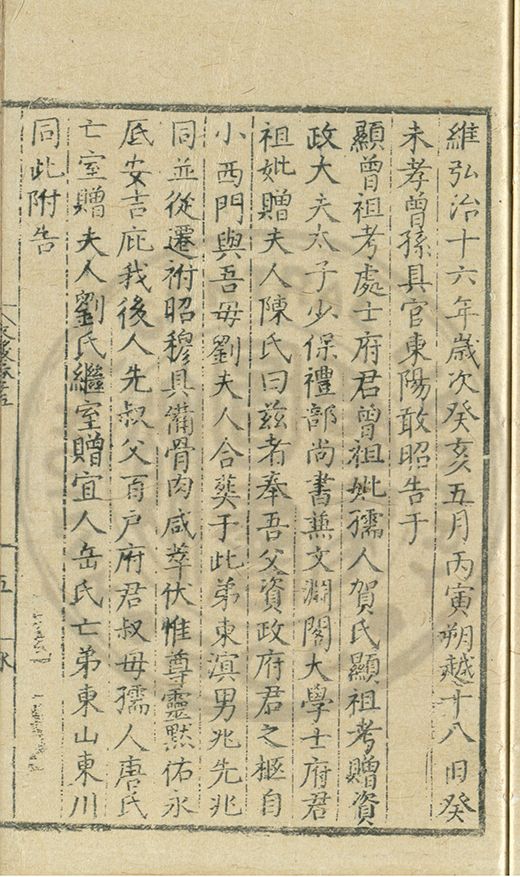 維弘治十六年歲次癸亥五月丙寅朔越十八日癸
未孝曾孫具官東陽敢昭告于
顯曾祖考處士府君曾祖妣孺人賀氏顯祖考贈資
政大夫太子少保禮部尚書蕪文淵閣大學士府君
祖妣贈夫人陳氏曰兹者奉吾父資政府君之柩自
小西門與吾母劉夫人合𦵏于此弟東溟男兆先兆
同並從遷祔昭穆具備骨肉咸萃伏惟尊靈黙佑永
厎安吉庇我後人先叔父百戶府君叔母孺人唐氏
亡室贈夫人劉氏繼室贈宜人岳氏亡弟東山東川
同此附告
五